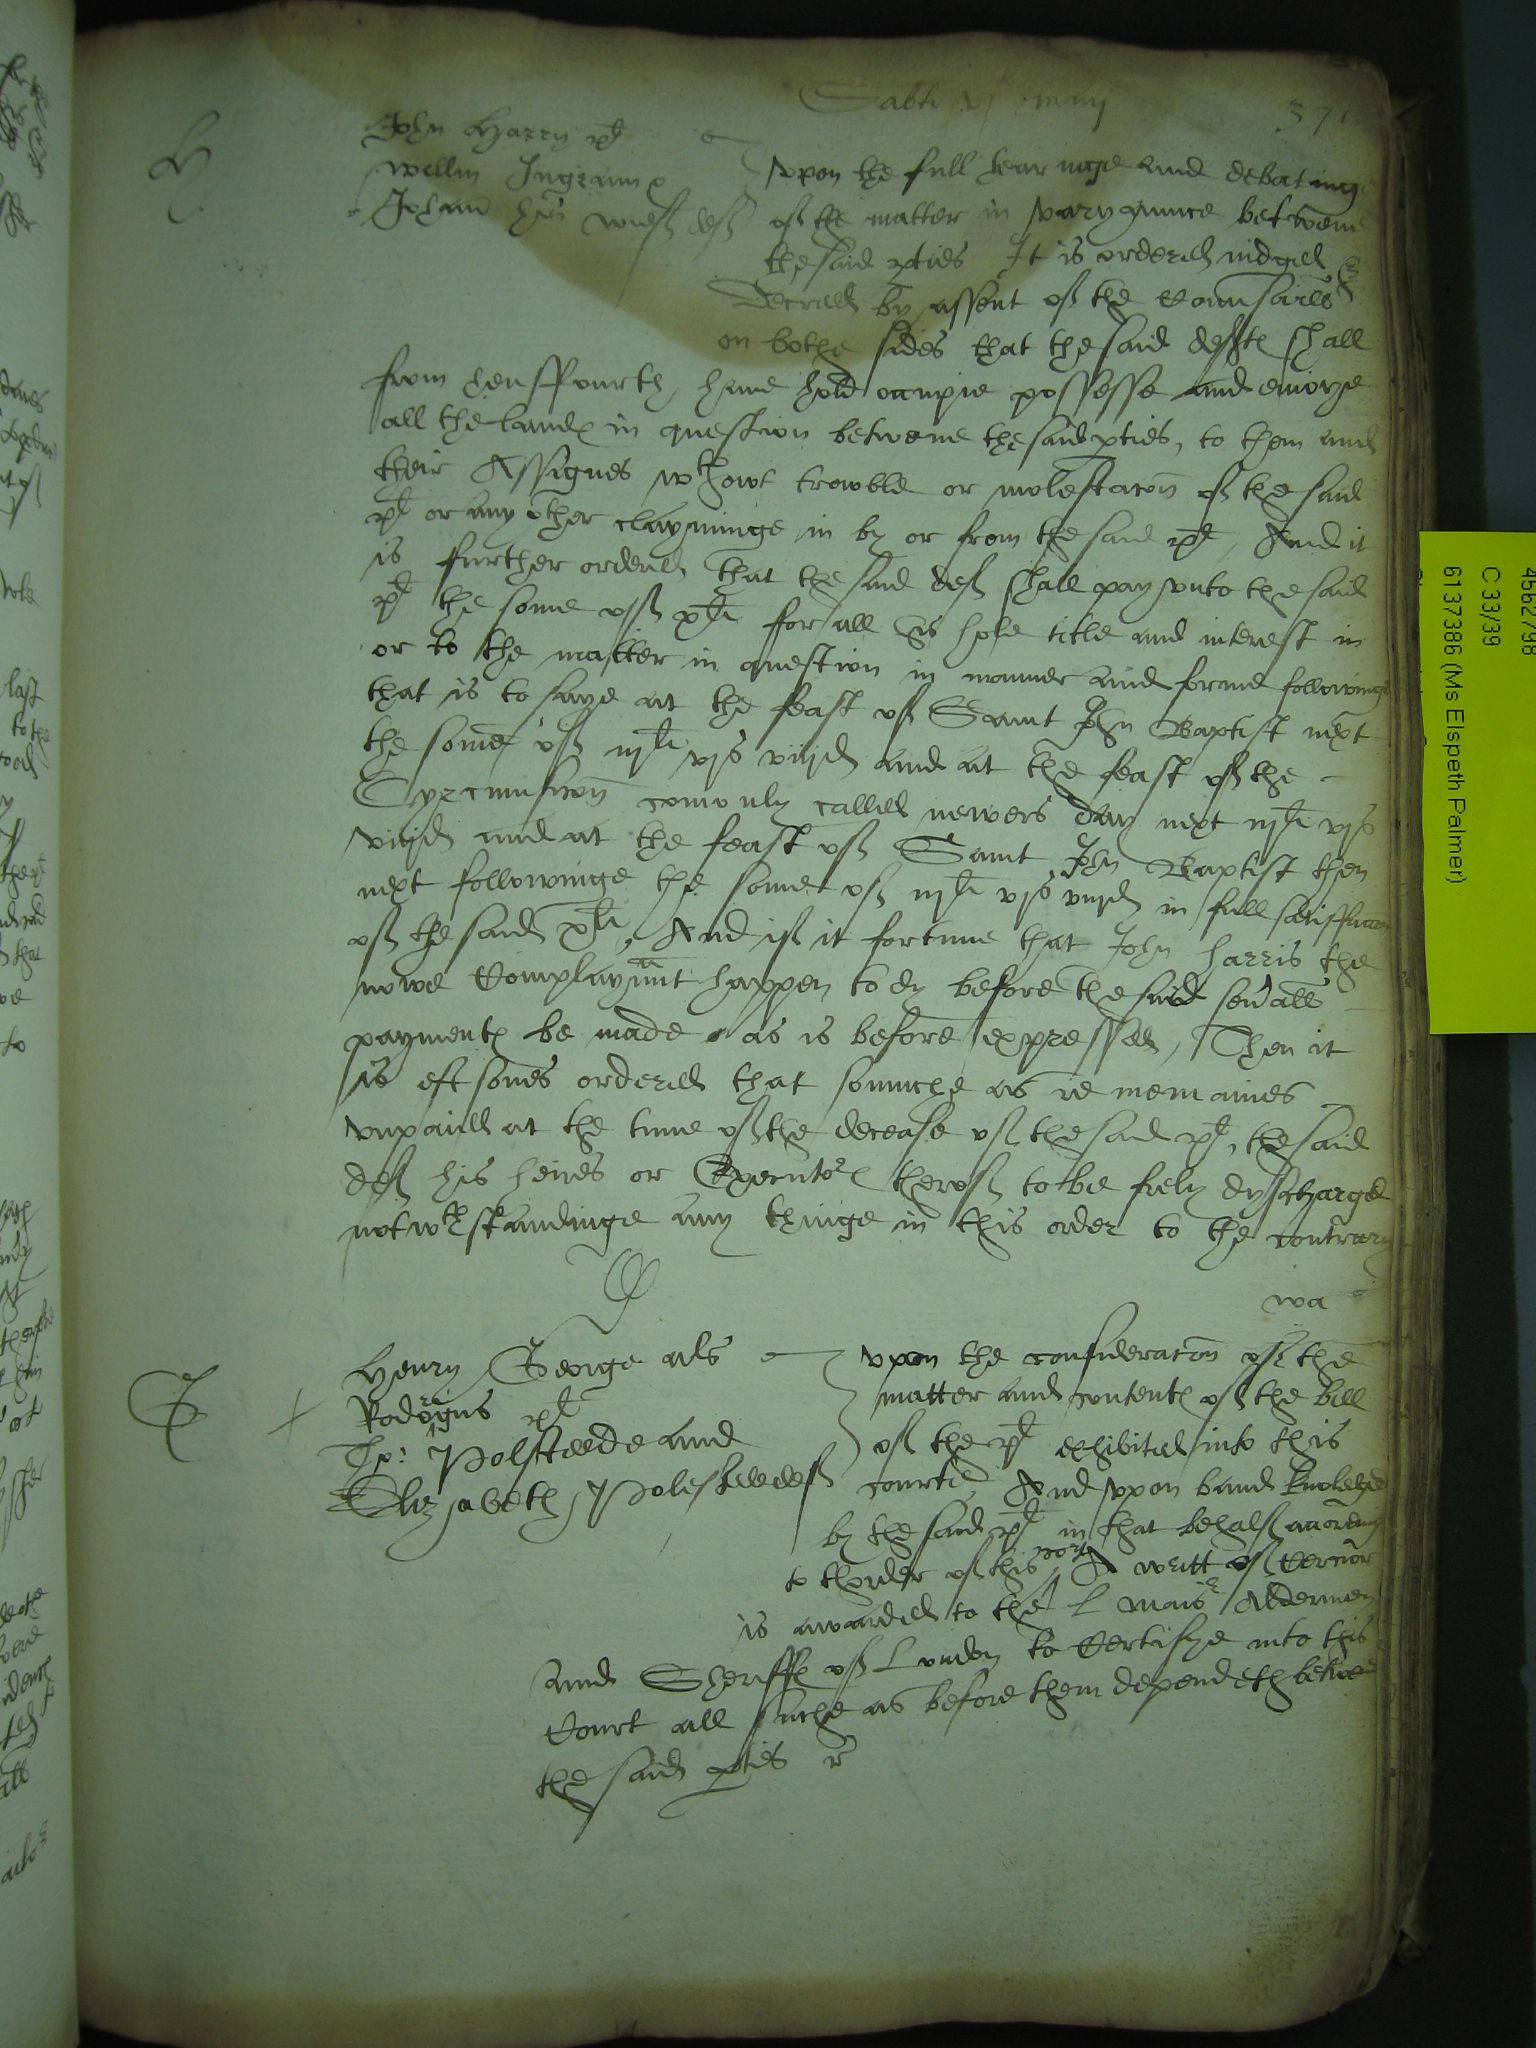 Sabti maij
371
H
John Harry pl
Willm Ingram
Johann his wief def
vpon the full hearinge and debatinge
of the matter in varyaunce betwene
the said pties It is ordered iudged &
Decreed by assent of the Counsailes
on bothe sides that the said deftes shall
from hensffourth haue hold occupie possesse and enioye
all the landes in question betwene the said pties, to them and
their Assignes wthowt trowble or molestacon of the said
pl or any other clayminge in by or from the said pl, And it
is further ordered that the said def shall pay vnto the said
pl the some of xli for all his hole title and interest in
or to the matter in question in manner and forme followinge
that is to saye at the feast of Saint John Baptist next
the some of iijli vjs viijd and at the feast of the
Cyrcumsicon comonly called newers day next iijli vjs
viijd and at the feast of Saint John Baptist then
next followinge the some of iijli vjs viijd in full satisffaccon
of the said xli, And if it fortune that John Harris the
nowe Complaynnt happen to dy before the said seu'all
paymentes be made as is before expressed, Then it
is eftsones ordered that somuche as re memaines
vnpaid at the time of the decease of the said pl, the said
def his heires or Executors therof to be frely dyscharged
notwthstandinge any thinge in this order to the contrary
wa
G
Henry George als
Rodrigus pl
Tho: Polsteede and
Elizabeth Polesteede def
vpon the consideracon of the
matter and contentes of the bill
of the pl exhibited into this
courte, And vpon band knoledged
by the said pl in that behalf accordinge
to thorder of this court A writt of Cerciorr
is awarded to the L Maior Aldermen
and Sheriffes of London to Certifye into this
Court all suche as before them dependeth betwene
the said pties
4562798
C 33/39
6137386 (Ms Elspeth Palmer)